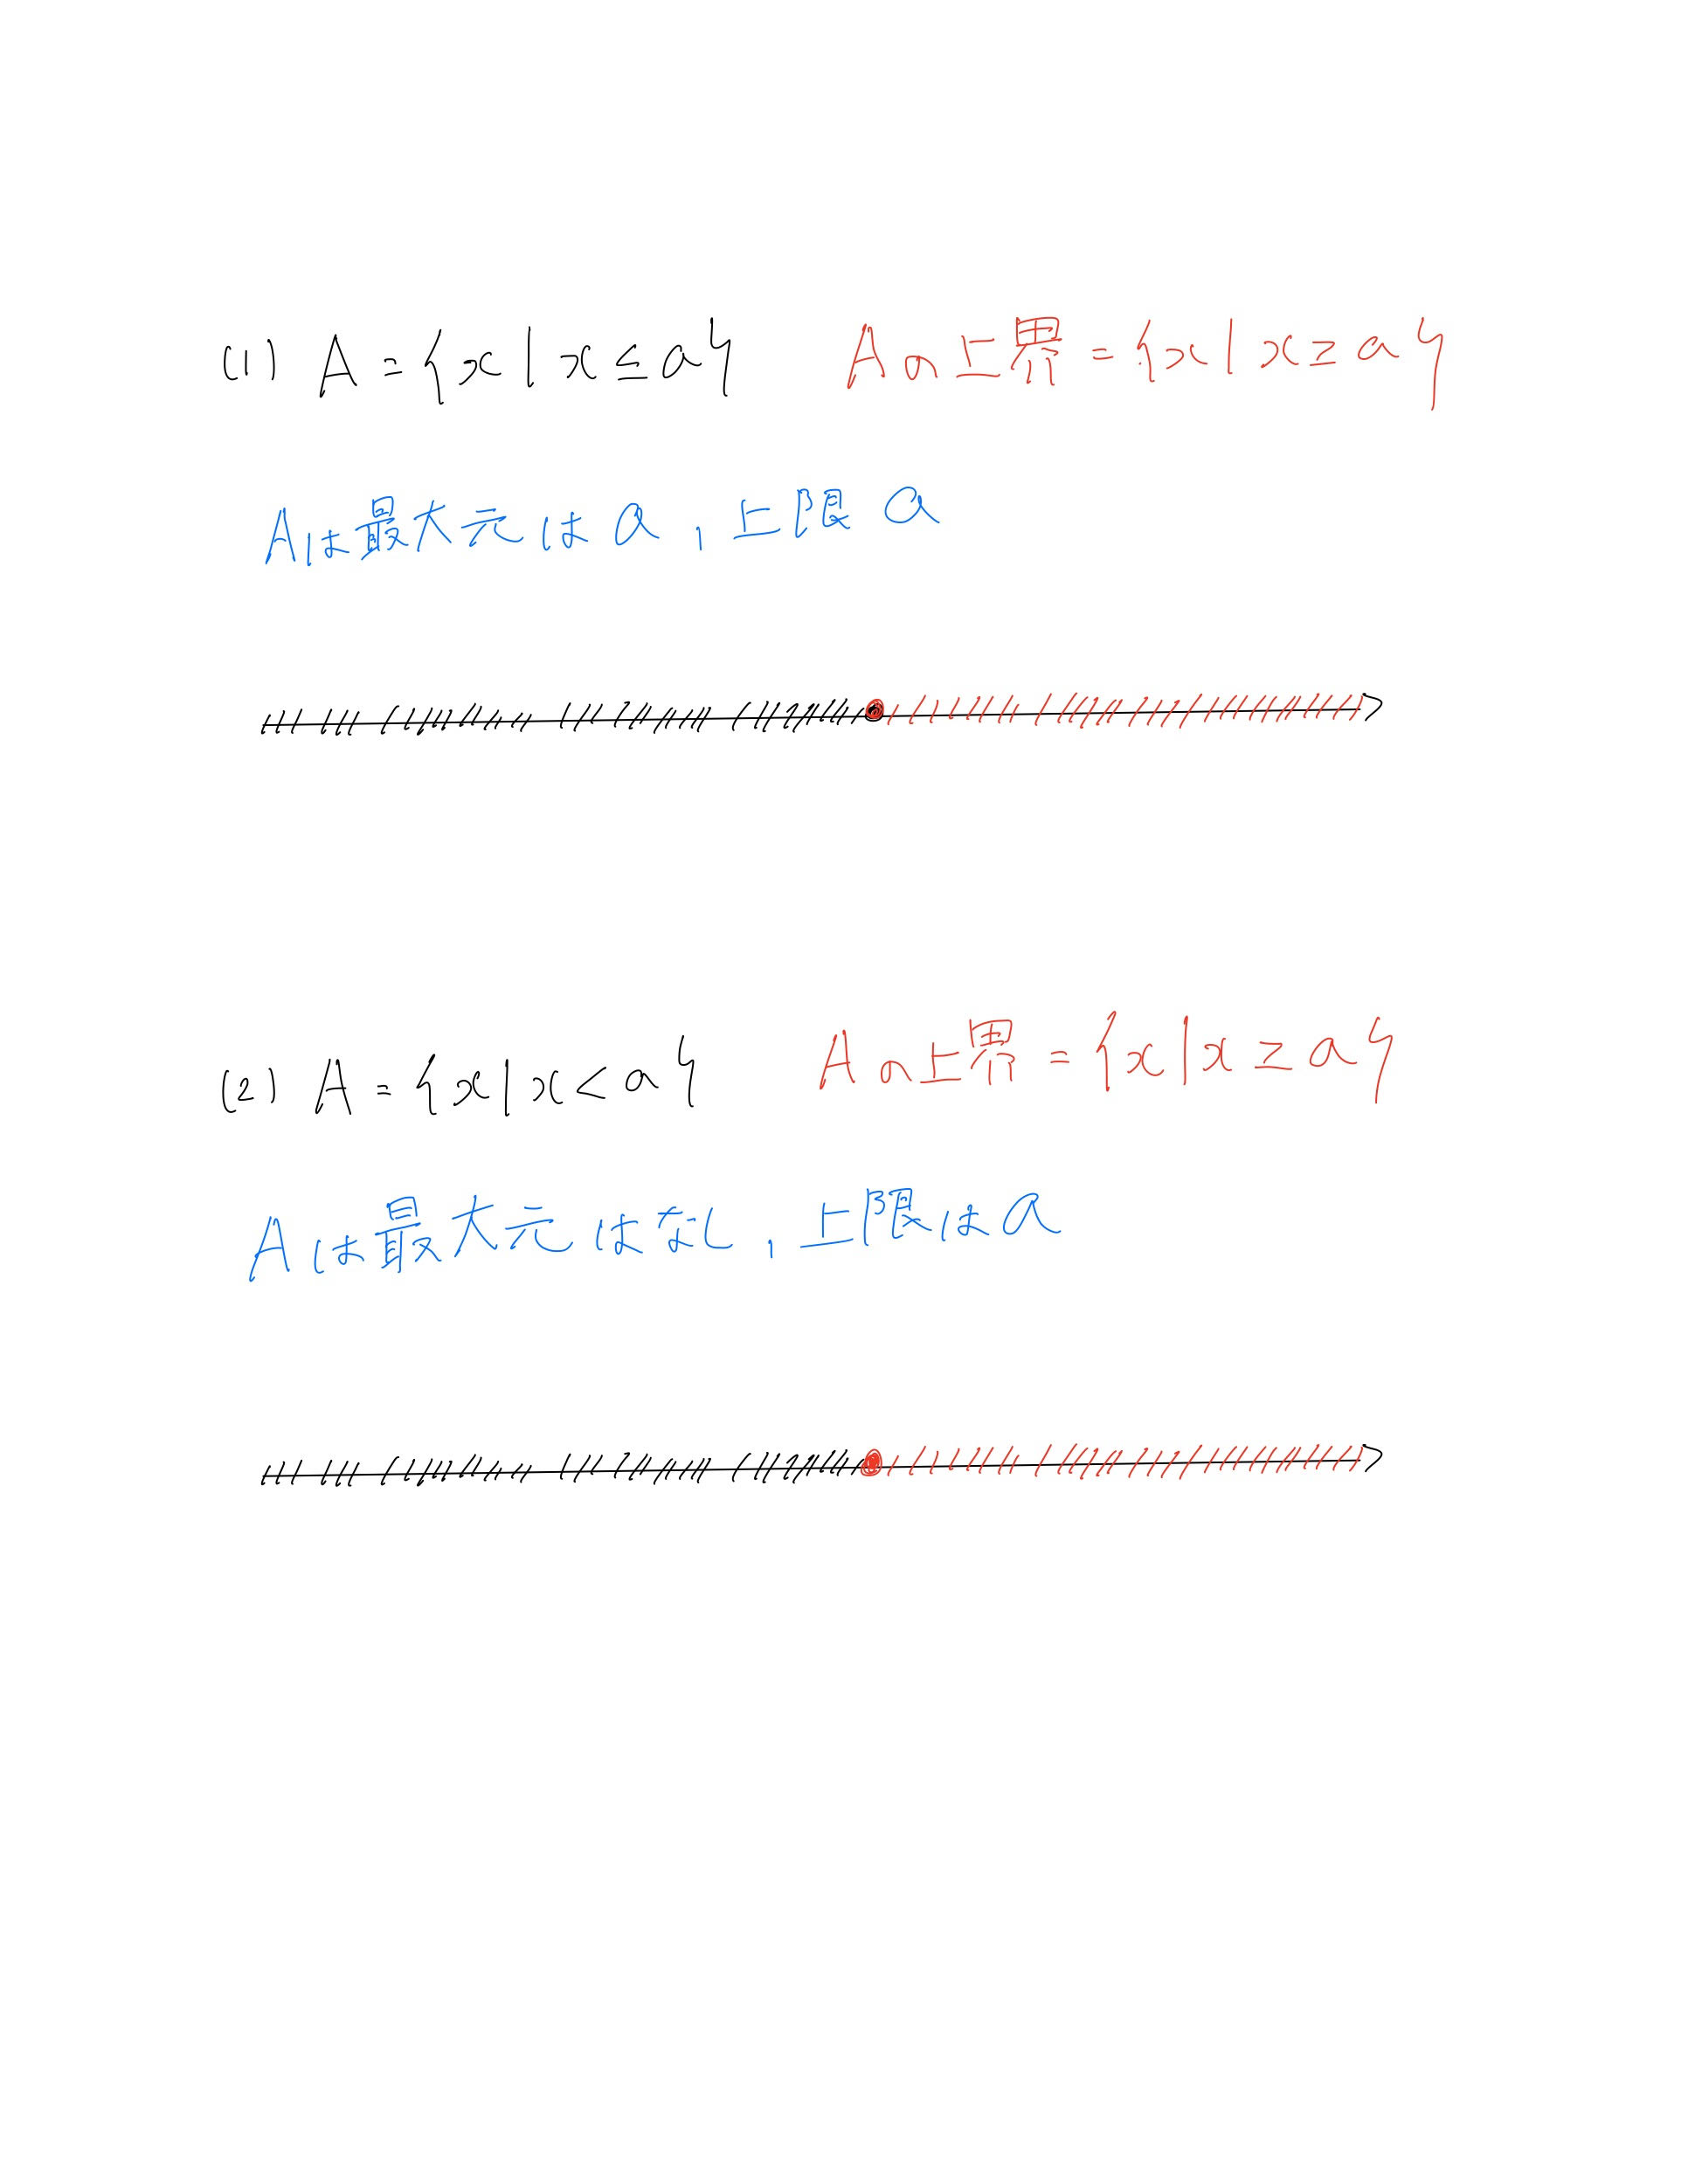 (1) A = {x | x ≦ a} Aの上界 = {x | x ≧ a}
Aは最大元は a , 上限 a
(2) A = {x | x < a} Aの上界 = {x | x ≧ a}
Aは最大元はなし , 上限は a